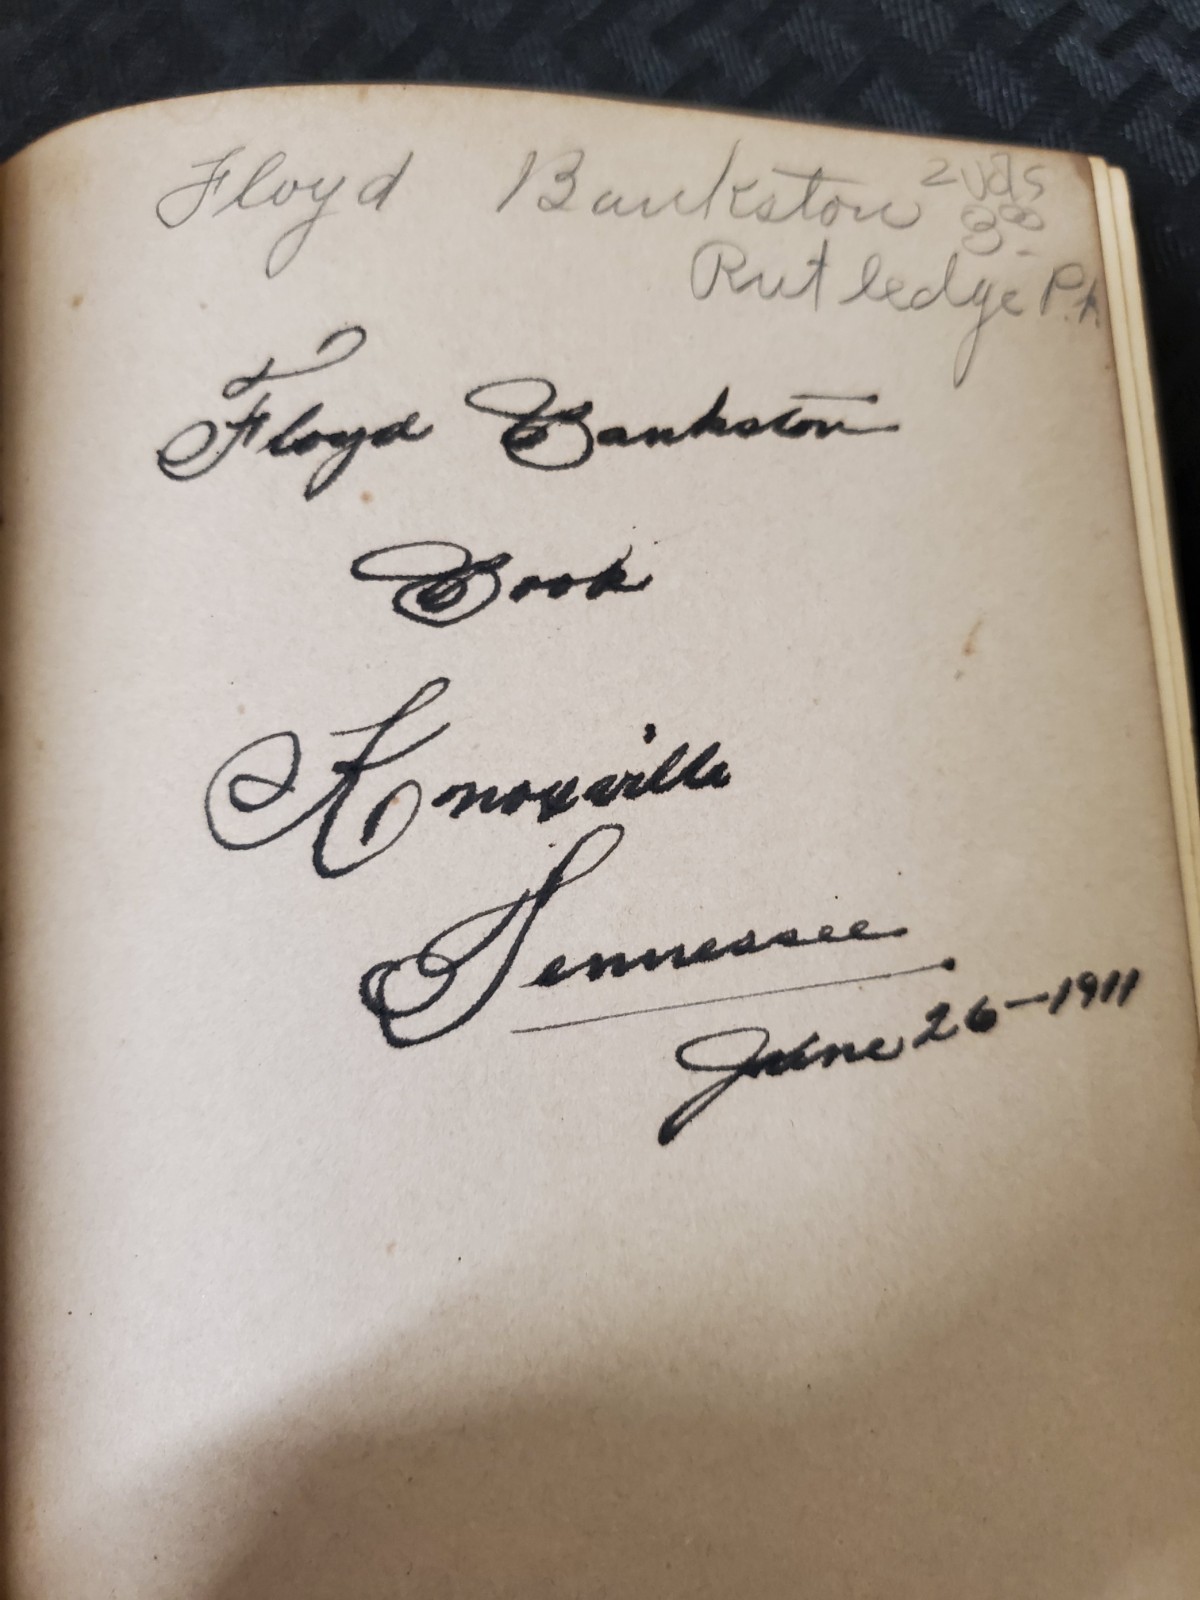 Floyd Bankston 2 vols
3.00
Rutledge Pk.
Floyd Bankston
Book
Knoxville
Tennessee
June 26-1911